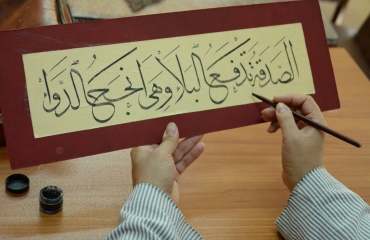 الصدقة تدفع البلاء وهي انجح الدواء